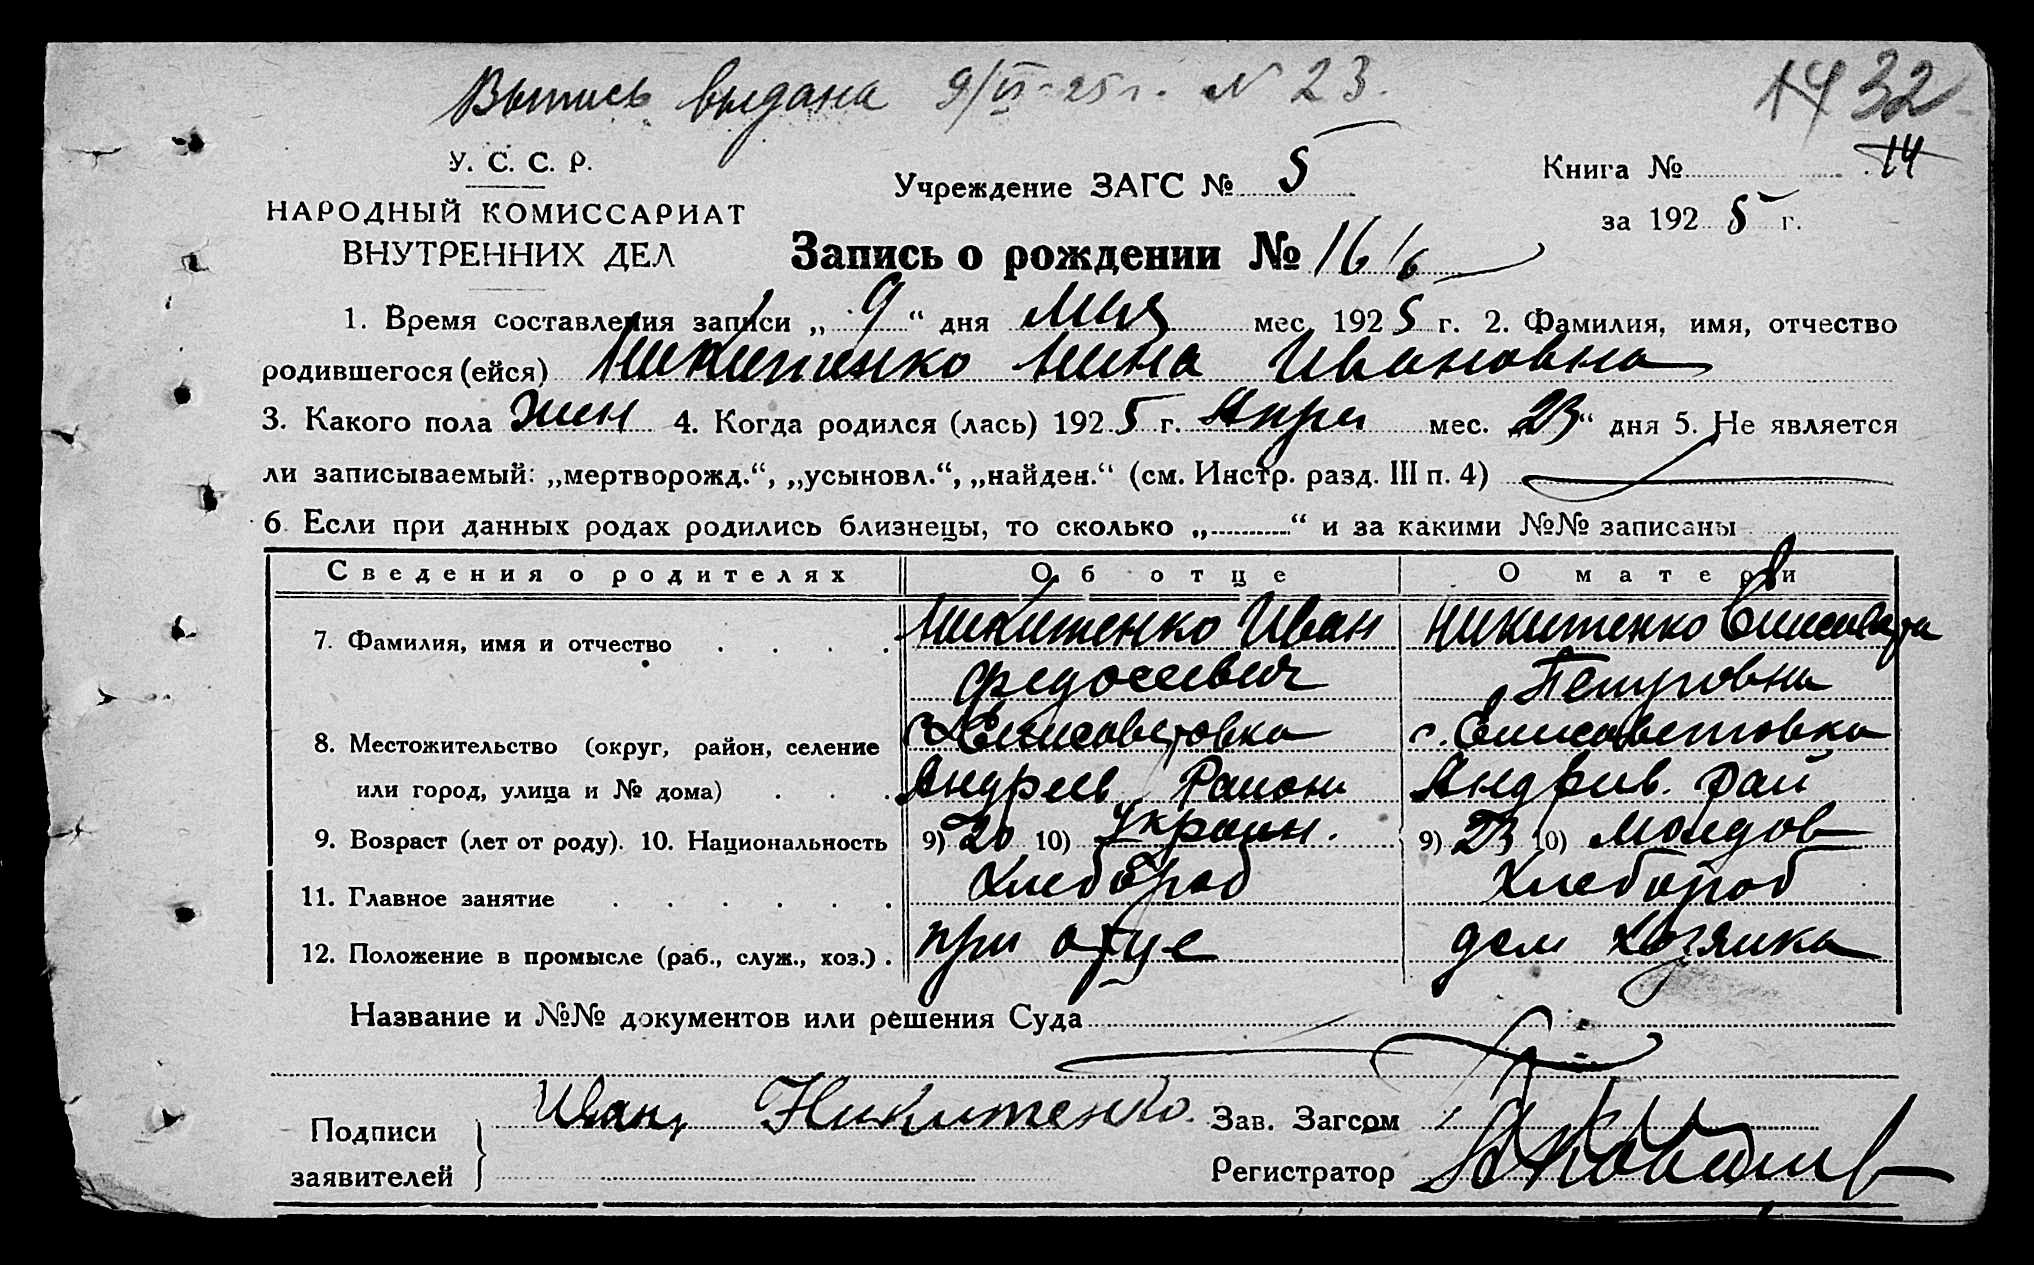 Выпись выдана 9/VI-25 г. N 23.
32
У. С. С. Р.
Учреждение ЗАГС № 5
Книга № 14
НАРОДНЫЙ КОМИССАРИАТ
за 1925 г.
ВНУТРЕННИХ ДЕЛ
Запись о рождении № 16
1. Время составления записи „ 9 “ дня Мая мес. 1925 г. 2. Фамилия, имя, отчество
родившегося (ейся) Никитенко Нина Ивановна
3. Какого пола жен 4. Когда родился (лась) 1925 г. Апрел мес. „23“ дня 5. Не является
ли записываемый: „мертворожд.“, „усыновл.“, „найден.“ (см. Инстр. разд. III п. 4)
6. Если при данных родах родились близнецы, то сколько „..........“ и за какими №№ записаны
Сведения о родителях Об отце О матери
7. Фамилия, имя и отчество . . . . Никитенко Иван Никитенко Елисавета
Федосеевич Петровна
8. Местожительство (округ, район, селение с. Елисаветовка с. Елисаветовка
или город, улица и № дома) . . . Андреев Района Андреив. рай
9. Возраст (лет от роду). 10. Национальность 9) 20 10) Украин. 9) 23 10) Молдов
11. Главное занятие . . . . . . Хлебороб Хлебороб
12. Положение в промысле (раб., служ., хоз.) . при отце дом хозяйка
Название и №№ документов или решения Суда
Подписи Иван Никитенко. Зав. Загсом
заявителей Регистратор